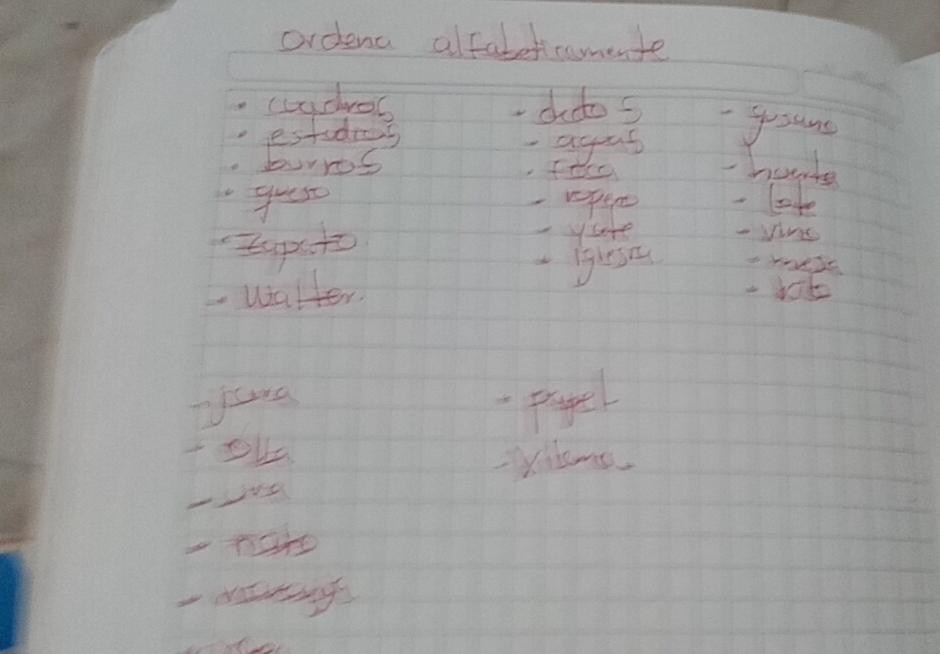 Ordena alfabeticamente
- cuadros
- estudios
- burros
- queso
- Zapato
- Walter.
- dedos
- aguas
- foca
- ropero
- yate
- iglesia
- gusano
- huerta
- lote
- vino
- mesa
- kilo
- olla
- uva
- papel